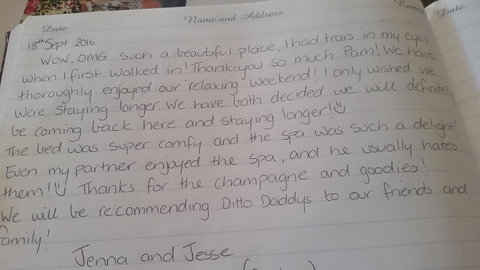 Date Name and Address Date
18th Sept 2016
Wow, OMG such a beautiful place, I had tears in my eyes
when I first walked in! Thank-you so much Pam! We have
thoroughly enjoyed our relaxing weekend! I only wished we
were staying longer. We have both decided we will definitel
be coming back here and staying longer!
The bed was super comfy and the spa was such a delight!
Even my partner enjoyed the spa, and he usually hates
them! Thanks for the champagne and goodies!
We will be recommending Ditto Daddys to our friends and
family!
Jenna and Jesse